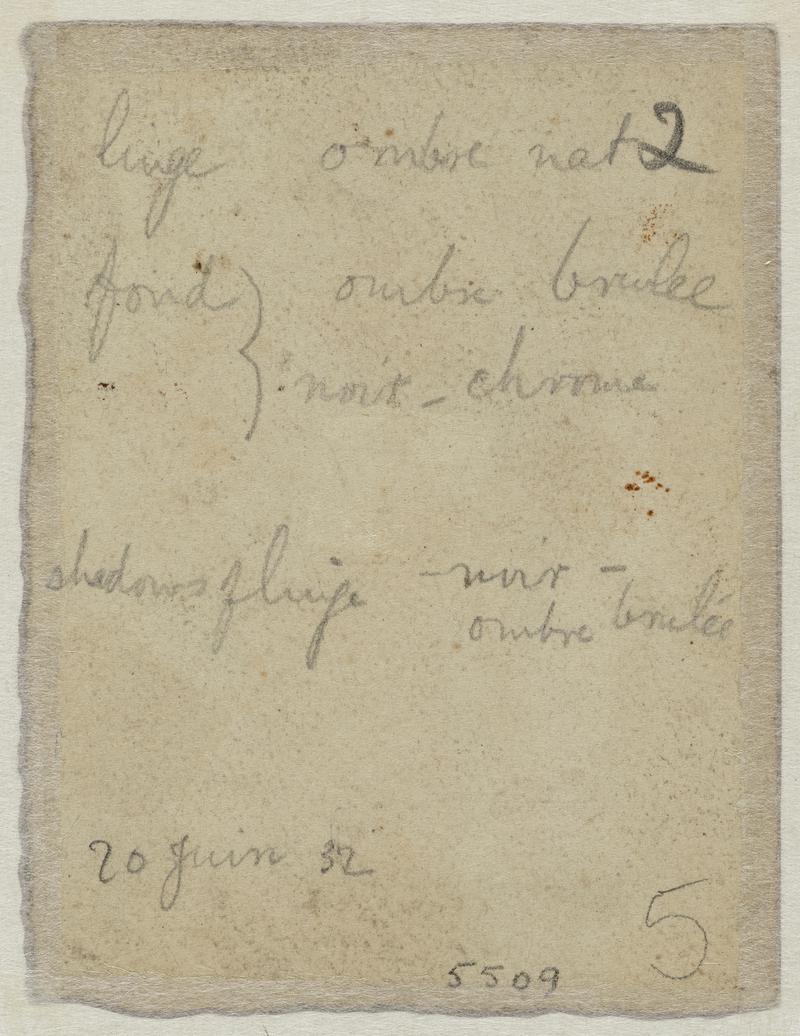 linge ombre nat 2
fond } ombre brulée
noir - chrome
shadows f linge - noir -
ombre brulée
20 Juin 32
5
5509